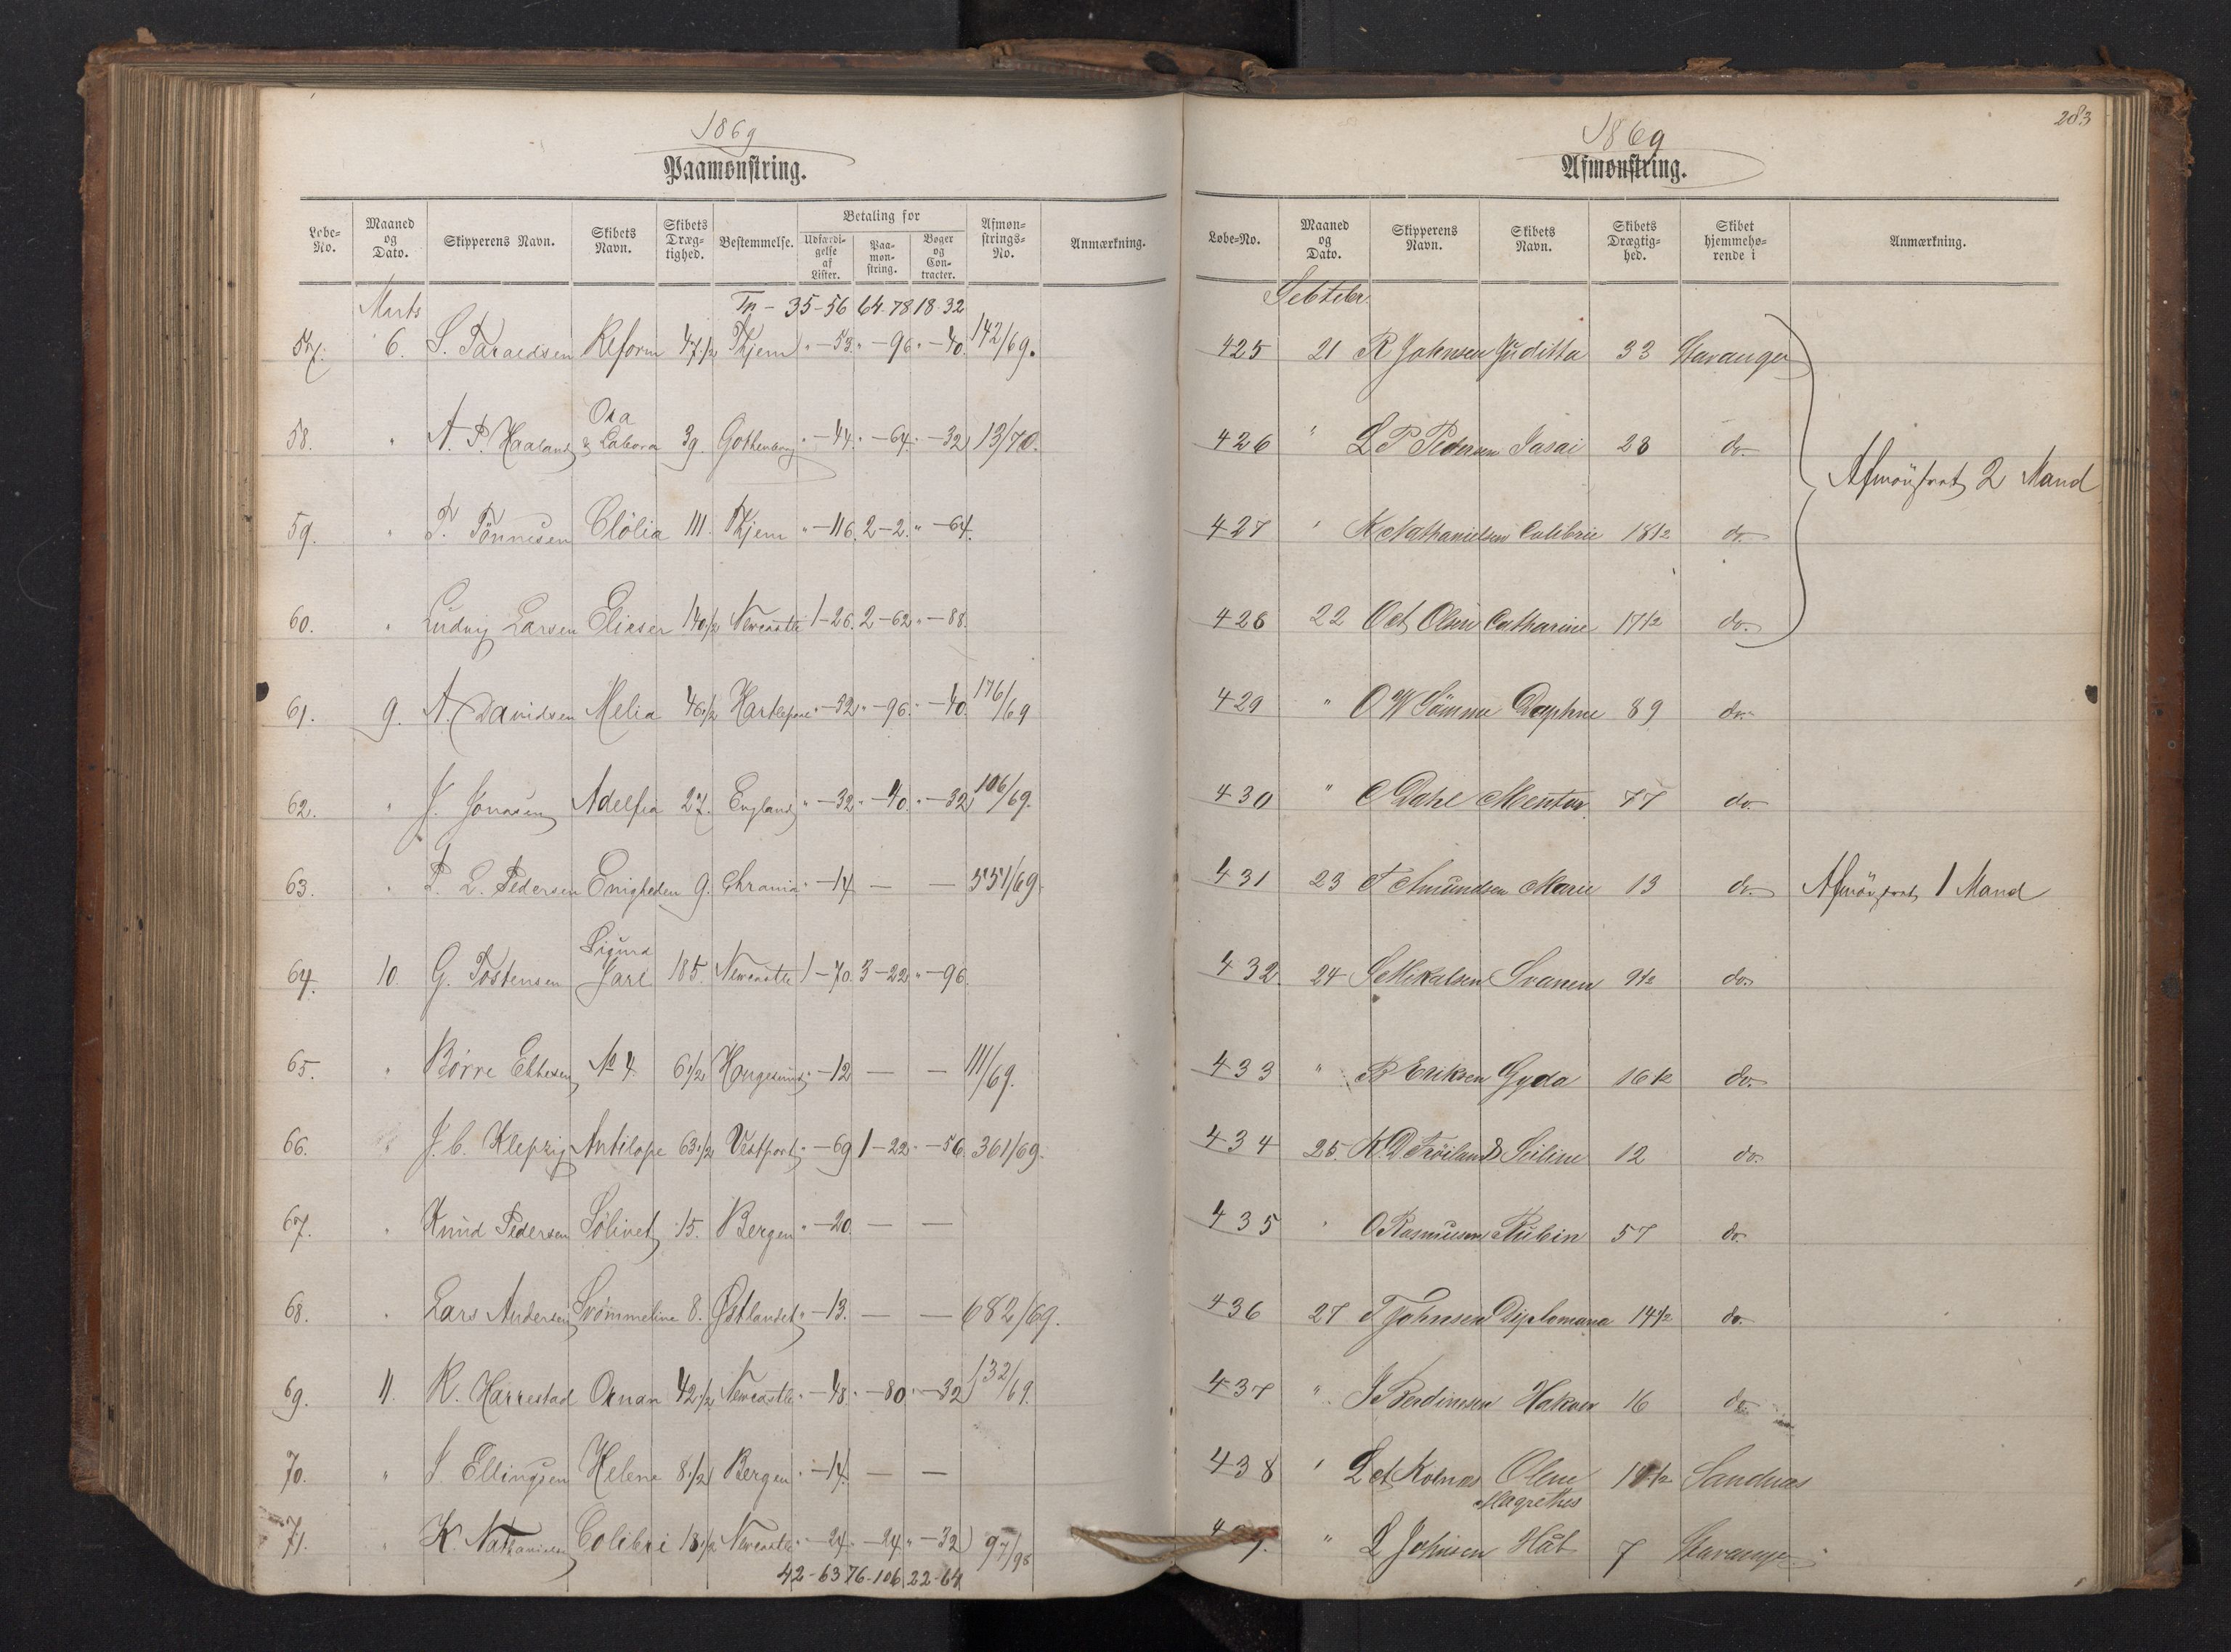 1869
Paamønstring.
Løbe-No. Maaned og Dato. Skipperens Navn. Skibets Navn. Skibets Dræg-tighed. Bestemmelse. Betaling for Udfærdi-gelse af Lister. Paa-møn-string. Bøger og Con-tracter. Afmøn-strings-No. Anmærkning.
Marts Tr - 35-56 64.78 18.32
57. 6. S. Taraldsen Reform 47 1/2 Thjem " -53. " -96 " -40. 142/69.
58. " A. P. Haaland Ora & Labora 39. Gothenborg " -44. " -64. " -32 13/70.
59. " T. Tønnesen Clölia 111. Thjem " -116. 2-2. " -64.
60. " Ludvig Larsen Elieser 140 1/2 Newcastle 1-26. 2-62 " -88.
61. 9. A. Davidsen Melia 46 1/2 Hartlepool " -52 " -96. " -40. 176/69
62. " J. Jonasen Adelfia 27. England " -32 " -40. " -32 106/69.
63. " P. L. Pedersen Enigheden 9. Chrania " -14 — — 551/69.
64. 10. G. Tostensen Sigurd Jarl 185. Newcastle 1-70. 3-22 " -96.
65. " Børre Ellefsen No 4. 6 1/2 Haugesund " -12 — — 111/69.
66. " J. C. Klepzig Antilope 63 1/2 Vestport " -69 1-22 " -56. 361/69.
67. " Knud Pedersen Sølivet 15. Bergen " -20. — —
68. " Lars Andersen Svømmeline 8. Østlandet " -13. — — 682/69.
69. 11. R. Harrestad Ornan 42 1/2 Newcastle " -48. " -80. " -32 132/69.
70. " J. Ellingsen Helene 8 1/2 Bergen " -14. — —
71. " K. Nathanielsen Colibri 18 1/2 Newcastle " -24. " -24 " -32 97/98
42-63 76-106 22-64
283
1869
Afmønstring.
Løbe-No. Maaned og Dato. Skipperens Navn. Skibets Navn. Skibets Drægtig-hed. Skibet hjemmehø-rende i Anmærkning.
Sebtebr.
425 21 R Johnsen Juditha 33 Stavanger
426 " L P Pedersen Jasai 28 do.
Afmönstret 2 Mand
427 " K Nathanielsen Colibrie 18 1/2 do.
428 22 Oct Olsen Catharine 17 1/2 do.
429 " O W Sömme Daphne 89 do.
430 " C Dahl Mentor 77 do.
431 23 T Amundsen Marie 13 do. Afmönstret 1 Mand
432. 24 S Mikalsen Svanen 9 1/2 do.
433 " B Eriksen Gyda 16 1/2 do.
434 25. K. D. Fröiland Seiline 12 do.
435 " O Rasmusen Rubin 57 do.
436 27 T Johnsen Diplomana 14 1/2 do.
437 " J Berdinesen Hakon 16 do.
438 " L A Kolnes Olene 18 1/2 Sandnæs
Magrethes
" L Johnsen Håb 7 Stavanger